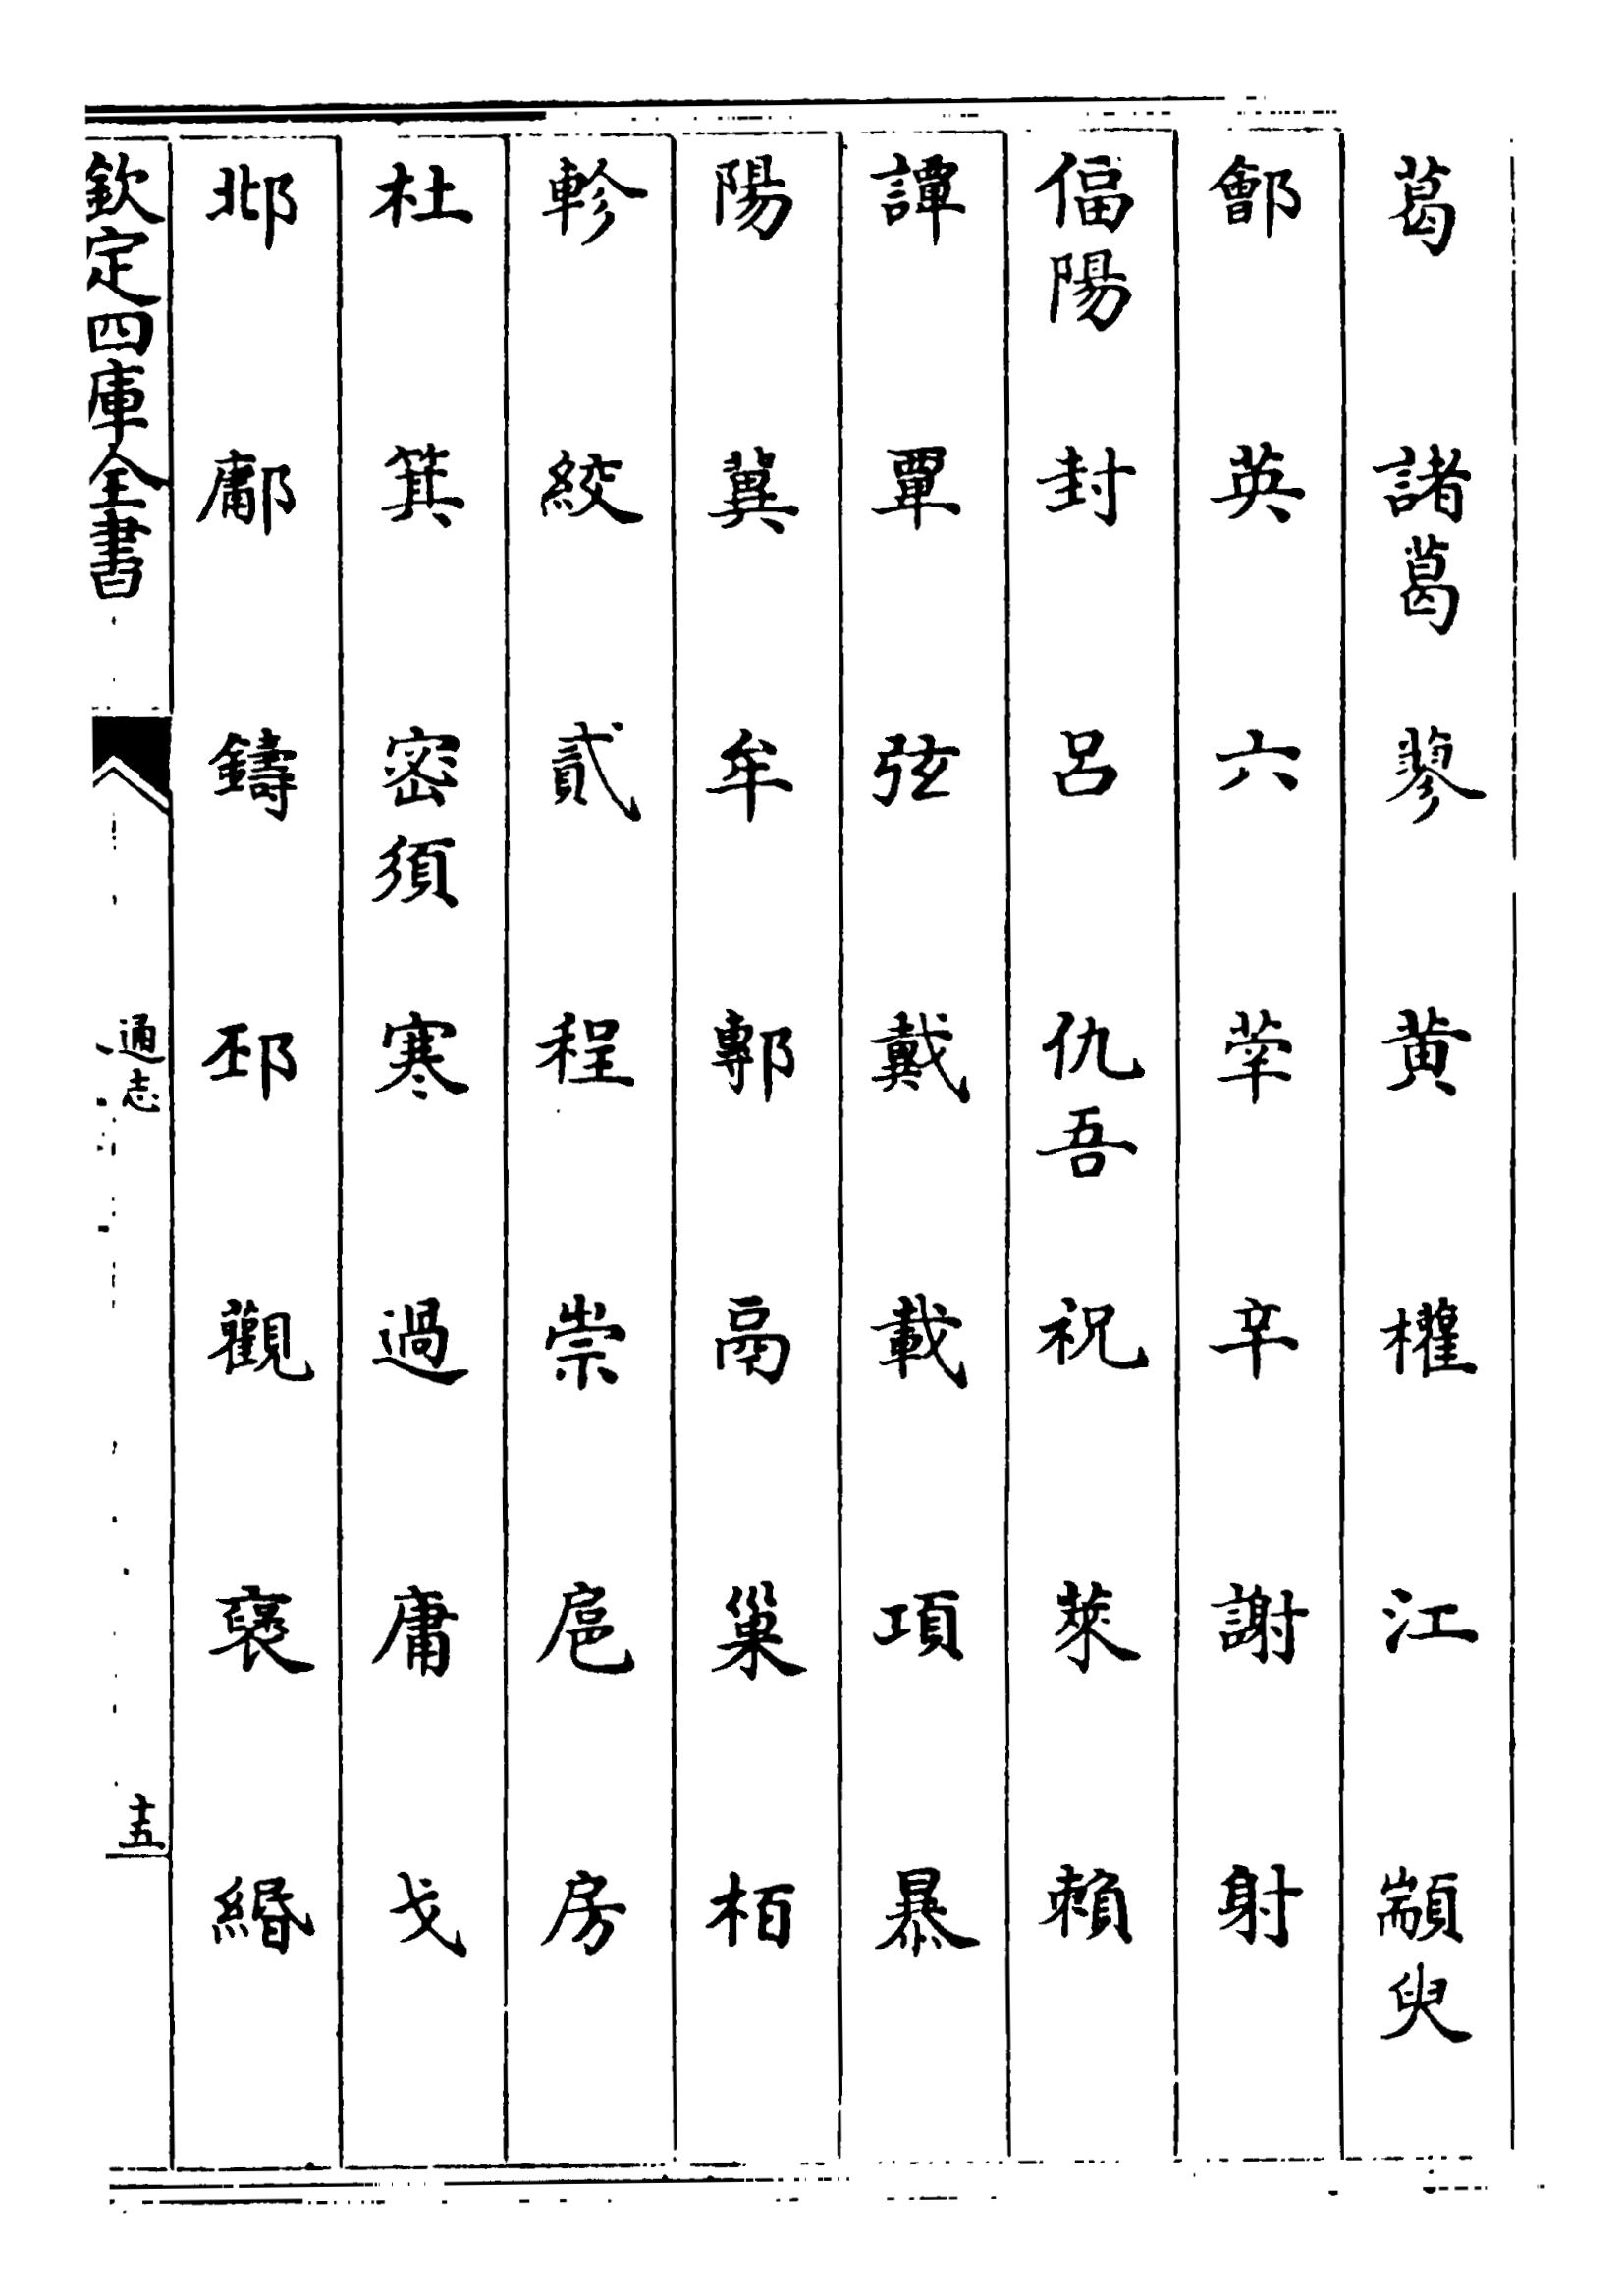 葛 諸葛 蓼 黄 權 江 顓臾
鄫 英 六 莘 辛 謝 射
偪陽 封 呂 仇吾 祝 萊 賴
譚 覃 弦 戴 載 項 暴
陽 冀 牟 鄟 鬲 巢 栢
軫 絞 貳 程 崇 扈 房
杜 箕 密須 寒 過 庸 戈
邶 鄘 鑄 邳 觀 褒 緡
欽定四庫全書 通志 十五